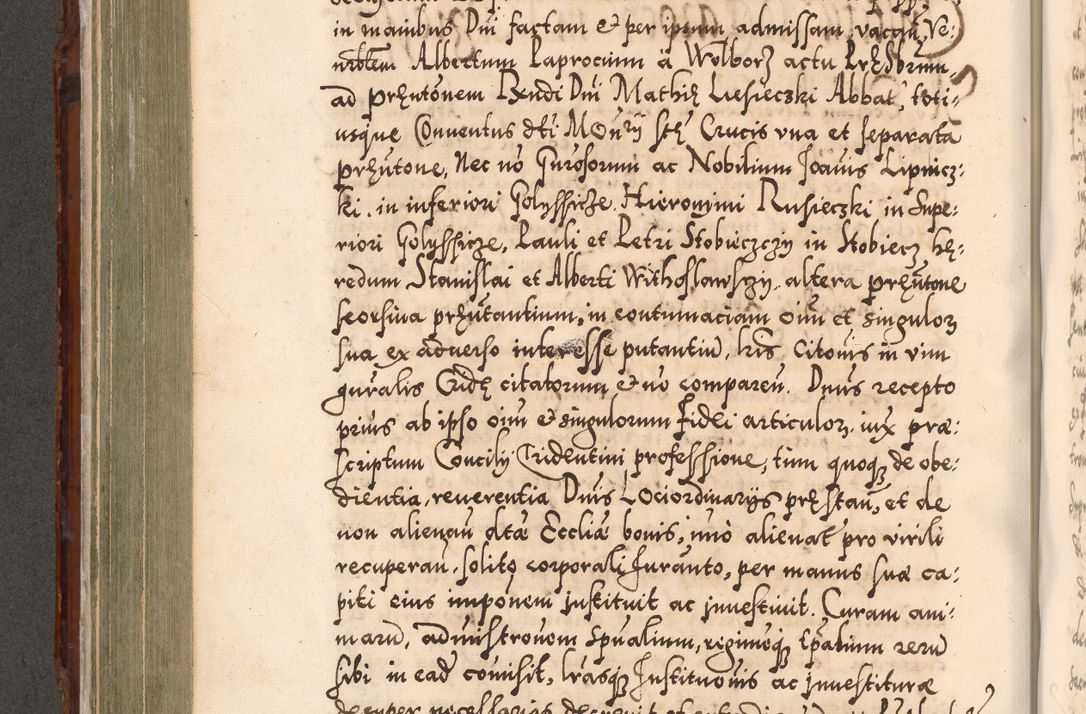 in manibus Dni factam et per ipsum admissam, vacan, Ve:
nrblem Albertum Paprocium a Wolborz actu Prezbrum
ad pręntonem Rxndi Dni Mathię Liesiecski Abbat, toti:
usque Conuentus dti Monrij Stę Crucis vna et separata
pręntone, Nec no Gnrosorum ac Nobilium Joanis Lipnicz:
ki in inferiori Golyssicze Hieronimi Rusiecski in Supe:
riori Golyssicze, Pauli et Petri Stobieczczy in Stobiecz hę:
redum Stanislai et Alberti Withoslawsczy altera pręntone
seorsiua pręntantium, in contumaciam oim et singuloꝝ
sua ex aduerso interesse putantiu, lris Citonis in vim
gnralis Cridę citatorum et no comparen. Dnus recepto
prius ab ipso oim et singulorum fidei articuloꝝ, iux præ:
scriptum Concilij Tridentini professione, tum quoqꝫ de obe:
dientia, reuerentia Dnis Lociordinarijs pręstan, et de
non alienan dtæ Eccliæ bonis, imo alienat pro virili
recuperan, solito corporali Juranto, per manus suæ ca:
piti eius imponem justituit ac jnuestiuit. Curam ani:
marū, administronem Spualium, regimoqꝫ tpalium rerū
sibi in ead comisit, lrasqꝫ Justituonis ac jnuestituræ
desuper necessarias decreuit